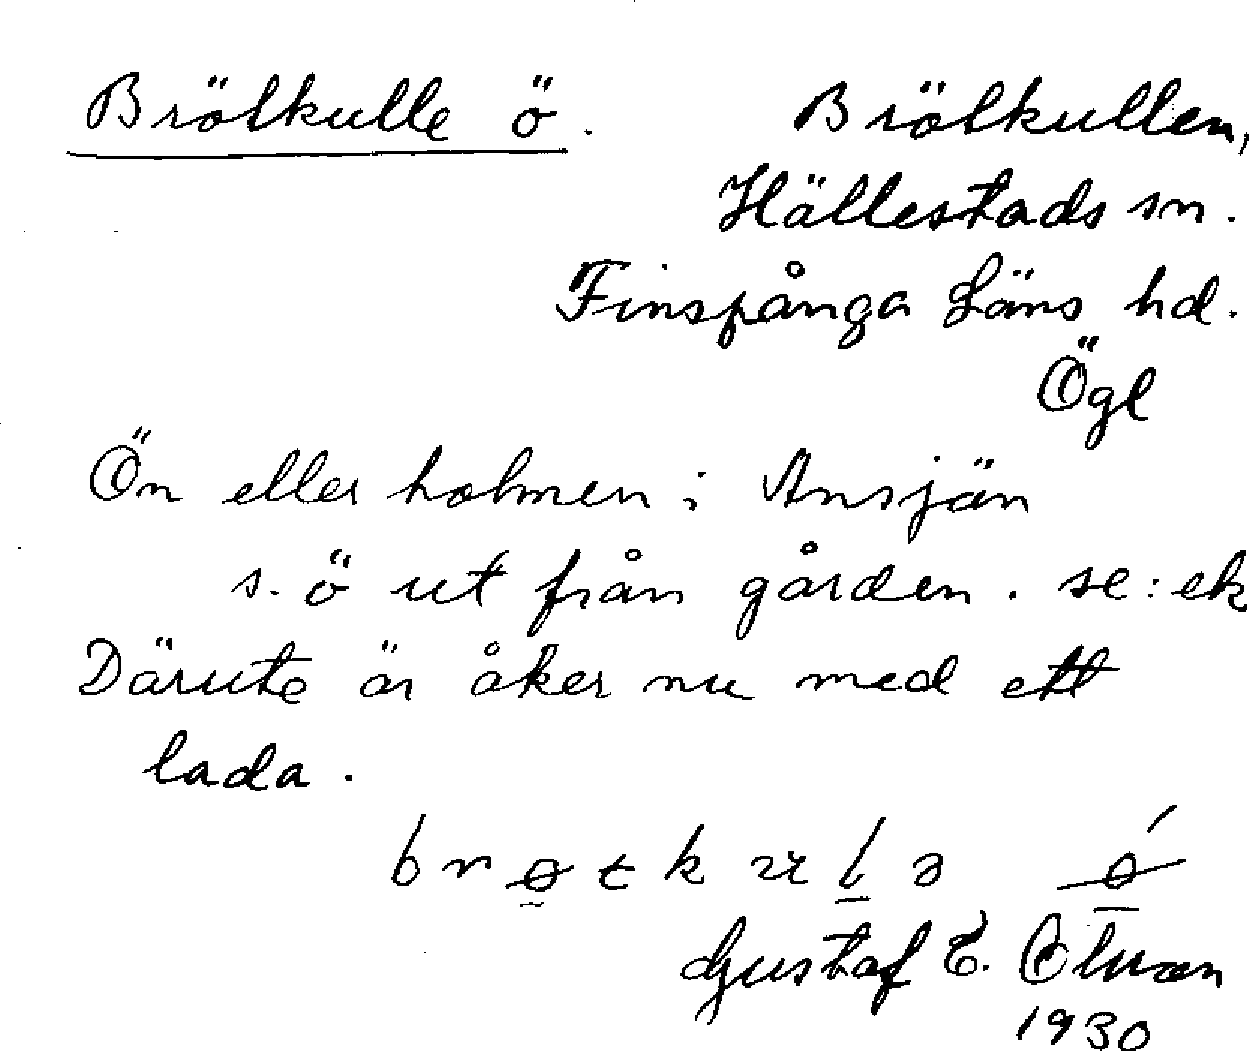 Brötkulle ö. Brötkullen,
Hällestads sn.
Finspånga Läns hd.
Ögl
Ön eller holmen i Ansjän
s. ö ut från gården. se: ek
Därute är åker nu med ett
lada.
Gustaf E.
1930